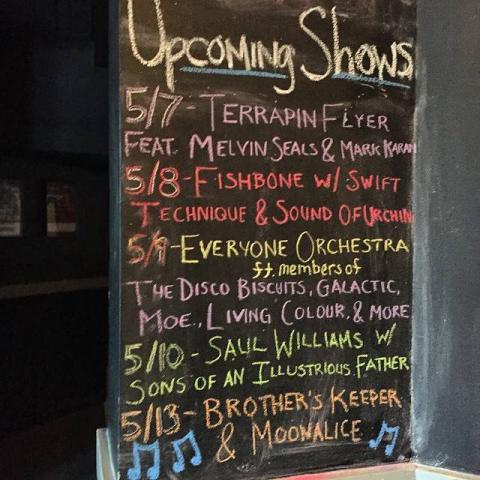 UPCOMING SHOWS
5/7-TERRAPIN FLYER
FEAT. MELVIN SEALS & MARK KARAN
5/8-FISHBONE W/ SWIFT
TECHNIQUE & SOUND OF URCHIN
5/9-EVERYONE ORCHESTRA
ft. members of
THE DISCO BISCUITS, GALACTIC,
MOE., LIVING COLOUR, & MORE
5/10-SAUL WILLIAMS W/
SONS OF AN ILLUSTRIOUS FATHER
5/13-BROTHER'S KEEPER
& MOONALICE